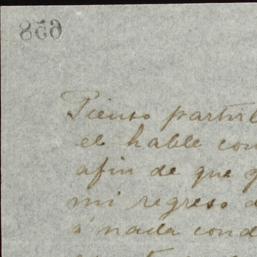 658
Pienso partir
el hable con
afin de que
mi regreso
a' nada cond